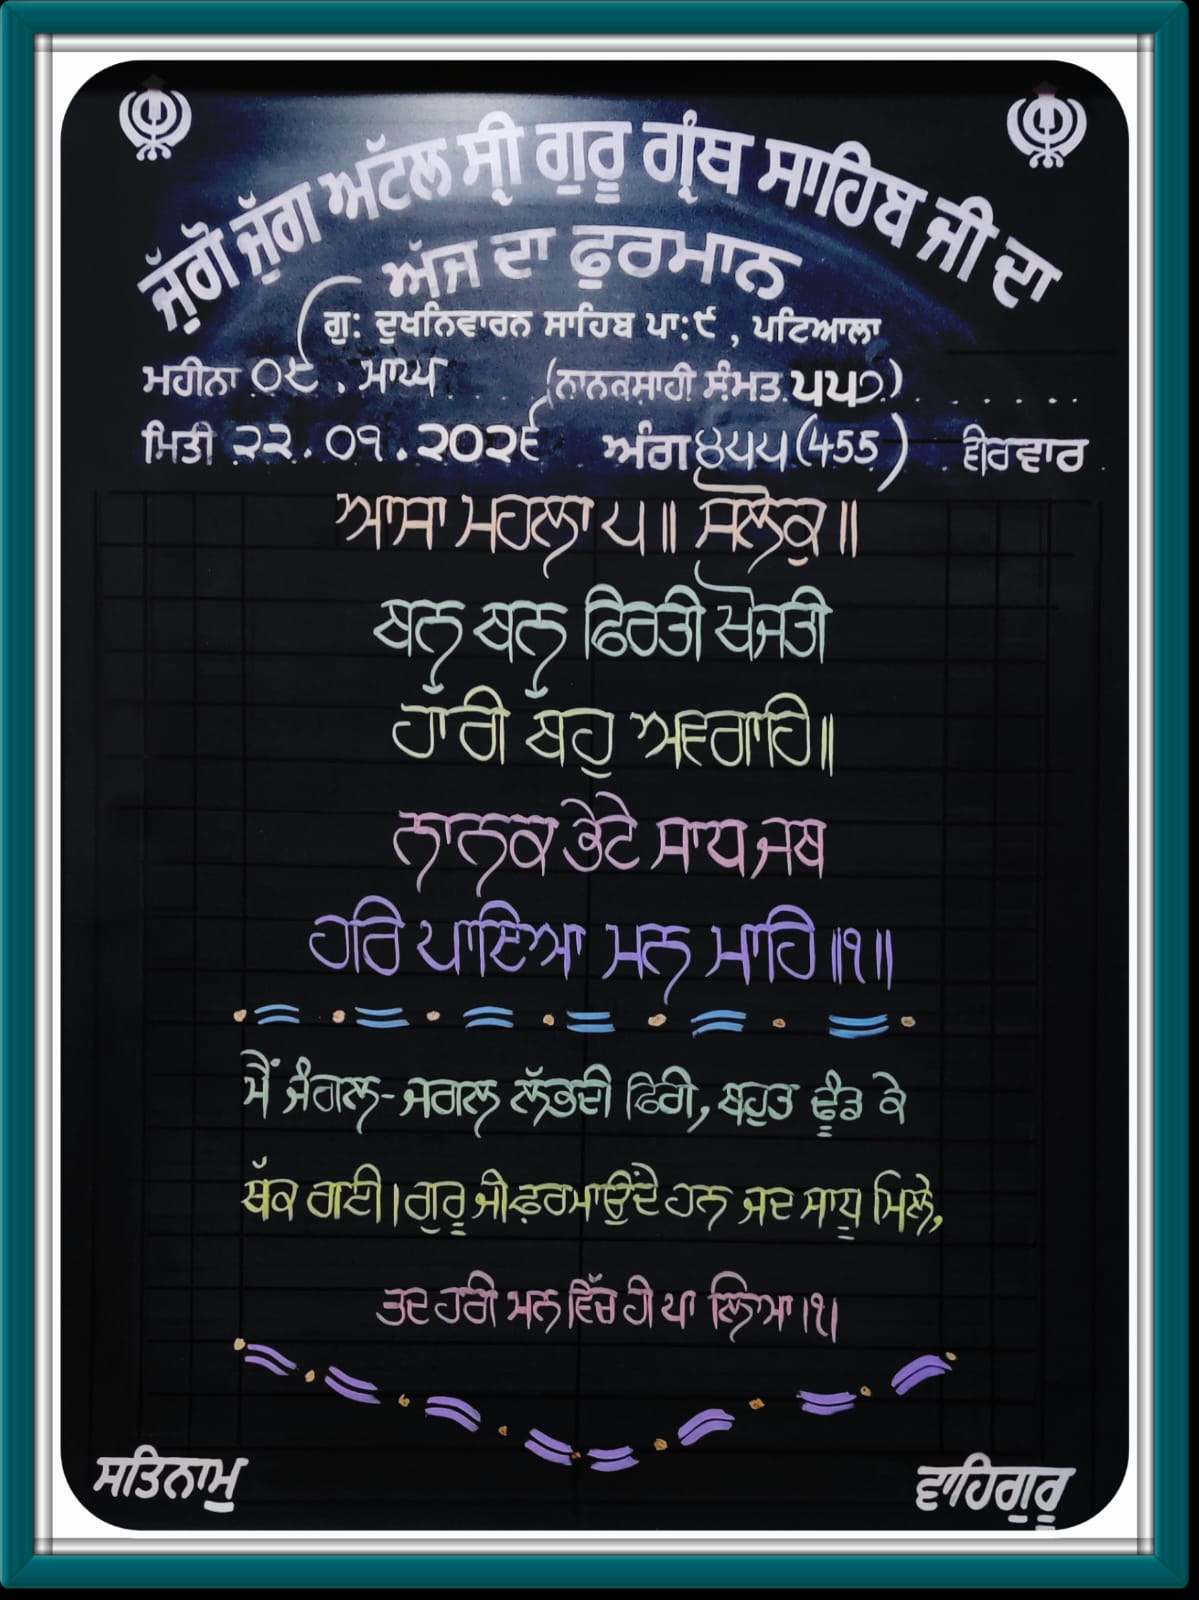 ਜੁੱਗੋ ਜੁੱਗ ਅਟੱਲ ਸ੍ਰੀ ਗੁਰੂ ਗ੍ਰੰਥ ਸਾਹਿਬ ਜੀ ਦਾ
ਅੱਜ ਦਾ ਫੁਰਮਾਨ
ਗੁ: ਦੁਖਨਿਵਾਰਨ ਸਾਹਿਬ ਪਾ:੯, ਪਟਿਆਲਾ
ਮਹੀਨਾ ੦੯, ਮਾਘ (ਨਾਨਕਸ਼ਾਹੀ ਸੰਮਤ ੫੫੭)
ਮਿਤੀ ੨੨.੦੧.੨੦੨੬ ਅੰਗ ੪੫੫ (455) ਵੀਰਵਾਰ
ਆਸਾ ਮਹਲਾ ੫॥ ਸਲੋਕੁ॥
ਬਨੁ ਬਨੁ ਫਿਰਤੀ ਖੋਜਤੀ
ਹਾਰੀ ਬਹੁ ਅਵਗਾਹਿ॥
ਨਾਨਕ ਭੇਟੇ ਸਾਧ ਜਬ
ਹਰਿ ਪਾਇਆ ਮਨ ਮਾਹਿ॥੧॥
ਮੈਂ ਜੰਗਲ-ਜਗਲ ਲੱਭਦੀ ਫਿਰੀ, ਬਹੁਤ ਢੂੰਡ ਕੇ
ਥੱਕ ਗਈ। ਗੁਰੂ ਜੀ ਫ਼ਰਮਾਉਂਦੇ ਹਨ ਜਦ ਸਾਧੂ ਮਿਲੇ,
ਤਦ ਹਰੀ ਮਨ ਵਿੱਚ ਹੀ ਪਾ ਲਿਆ।੧।
ਸਤਿਨਾਮੁ ਵਾਹਿਗੁਰੂ